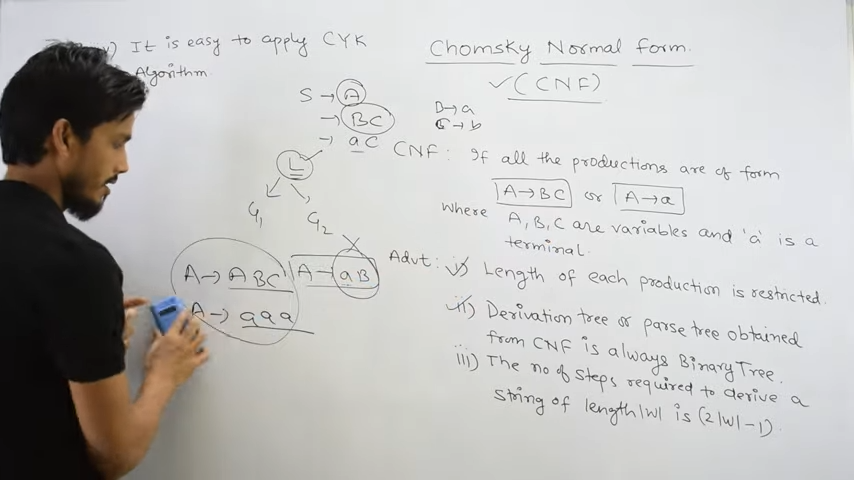 v) It is easy to apply CYK
Algorithm.
Chomsky Normal form.
✓(CNF)
S → A
→ BC
→ aC
B → a
→ b
L
G1
G2
A → ABC
A → aaa
A → aB
CNF: If all the productions are of form
A→BC or A→a
where A, B, C are variables and 'a' is a
terminal.
Advt: i) Length of each production is restricted.
ii) Derivation tree or parse tree obtained
from CNF is always Binary Tree.
iii) The no of steps required to derive a
string of length |w| is (2|w|-1).